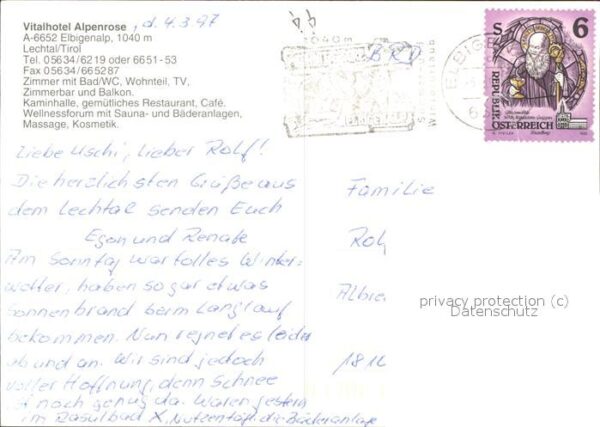 Vitalhotel Alpenrose, d. 4.3.97
A-6652 Elbigenalp, 1040 m
Lechtal/Tirol
Tel. 05634/6219 oder 6651-53
Fax 05634/665287
Zimmer mit Bad/WC, Wohnteil, TV,
Zimmerbar und Balkon.
Kaminhalle, gemütliches Restaurant, Café.
Wellnessforum mit Sauna- und Bäderanlagen,
Massage, Kosmetik.
Liebe Uschi, lieber Rolf!
Die herzlichsten Grüße aus
dem Lechtal senden Euch
Egon und Renate
Am Sonntag war tolles Winter-
wetter, haben sogar etwas
Sonnenbrand beim Langlauf
bekommen. Nun regnet es leider
ab und an. Wir sind jedoch
voller Hoffnung, denn Schnee
ist noch genug da. Waren gestern
im Rasulbad X, die Bäderanlage
BRD
1040m
ELBIGE
S 6
REPUBLIK
ÖSTERREICH
Familie
Rol
Albre
privacy protection (c)
Datenschutz